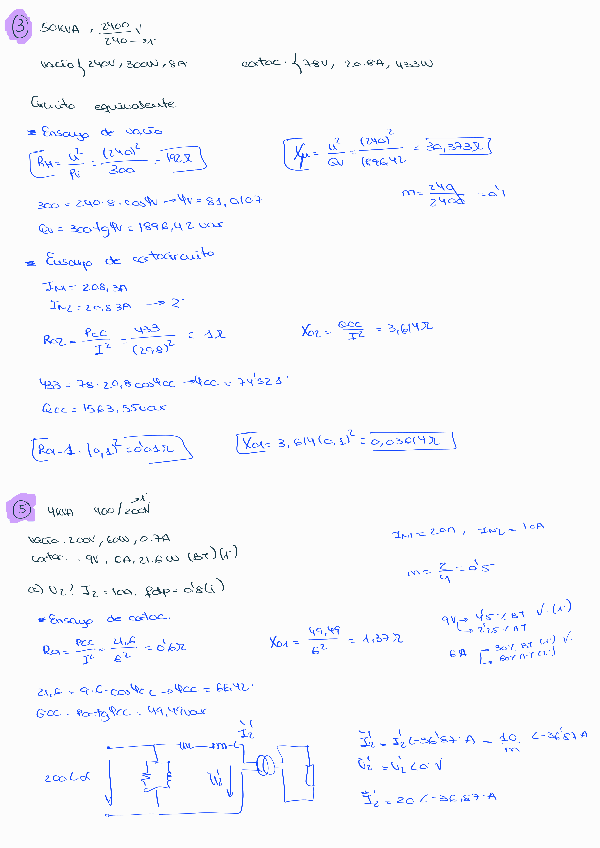 ③ 50KVA, 2400/240 → 1º
vacío {240V, 300W, 8A     cortoc. {78V, 20.8A, 433W
Circuito equivalente
* Ensayo de vacío
RH = U²/Pv = (240)²/300 = 192Ω     Xμ = U²/Qv = (240)²/1896,42 = 30,373Ω
300 = 240·8·cosφv → φv = 81,0107     m = 240/2400 = 0'1
Qv = 300·tgφv = 1896,42 var
* Ensayo de cortocircuito
IN1 = 208,3A
IN2 = 20,83A → 2º
Rc2 = Pcc/I² = 433/(20,8)² = 1Ω     Xc2 = Qcc/I² = 3,614Ω
433 = 78·20,8 cosφcc → φcc = 74'521º
Qcc = 1563,55var
Rc1 = 1·(0,1)² = 0'01Ω     Xc1 = 3,614(0,1)² = 0,03614Ω
⑤ 4KVA 400/200V → 1º
vacío: 200V, 60W, 0.7A     IN1 = 20A, IN2 = 10A
cortoc. 9V, 6A, 21.6W (BT)(1º)     m = 2/4 = 0'5
a) U2? I2 = 10A. fdp = 0'8(i)
* Ensayo de cortoc.     9V → 4'5% BT ✓ (1º)
→ 2'25% AT
Rc1 = Pcc/I² = 21,6/6² = 0'6Ω     Xc1 = 49,49/6² = 1,37Ω     6A 30% BT (1º) ✓
60% AT (2º)
21,6 = 9·6·cosφcc → φcc = 66,42º
Qcc = Pcc·tgφcc = 49,49var
I2'     I2' = I2'∠-36'87º A = 10/m ∠-36'87 A
200∠α     U2'     U2' = U2'∠0º V
I2' = 20∠-36,87º A